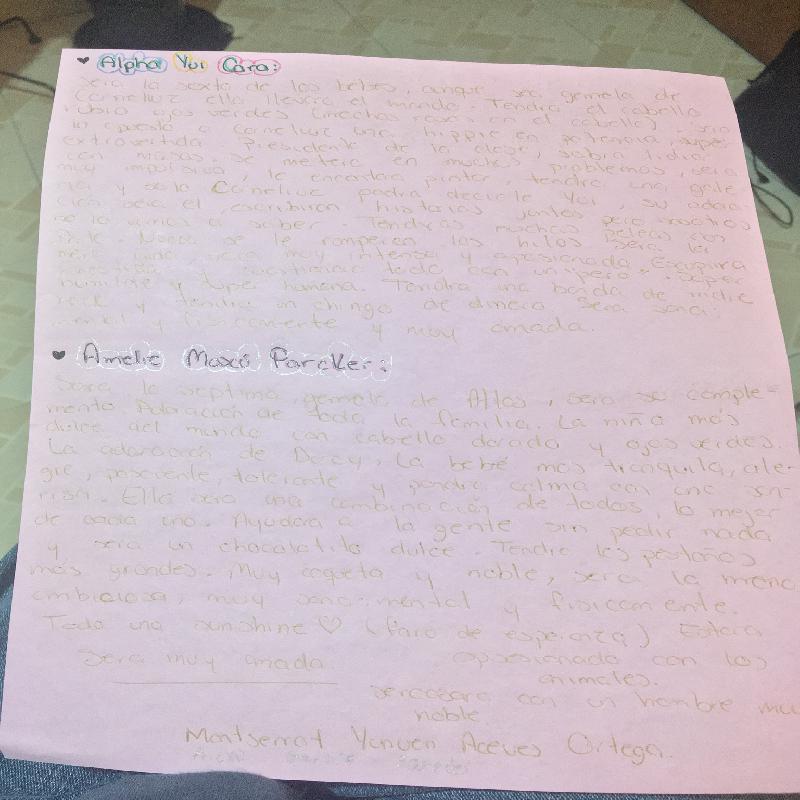 ♥ Alpha Yui Cora:
Sera la sexta de los bebes, aunque sea gemela de
Corneliuz ella llevara el mando. Tendra el cabello
rubio ojos verdes (mechas rosas en el cabello). Sera
lo opuesto a Corneliuz una hippie en potencia, super
extrovertida. Presidente de la clase, sabra lidiar
con masas. Se metera en muchos problemas, sera
muy impulsiva, le encantara pintar, tendra una
y solo Corneliuz podra decirle Yui, su adora
cion sera el, escribiran historias juntos pero nosotros
no lo vamos a saber. Tendras muchas peleas con
Nunca se le romperen los hilos sera la
sera muy intensa y apasionada
todo con un "pero". Super
humilde y super humana. Tendra una banda de indie
rock y tendra un chingo de dinero. Sera sana:
mental y fisicamente y muy amada.
♥ Amelie Maxó Parcker:
Sera la septima, gemela de Atlas, sera su comple-
mento. Adoración de toda la familia. La niña más
dulce del mundo con cabello dorado y ojos verdes.
La adoracion de Darcy, La bebé mas tranquila, ale-
gre, paseiente, tolerante y pondra calma con una son-
risa. Ella sera una combinación de todos, lo mejor
de cada uno. Ayudara a la gente sin pedir nada
y sera un chocolatito dulce. Tendra las pestañas
más grandes. Muy coqueta y noble, sera la menos
ambiciosa, muy sana: mental y fisicamente.
Toda una sunshine ♡ (faro de esperanza) Estara
Sera muy amada. opsesionada con los
animales.
con un hombre muy
noble
Montserrat Yunuen Aceves Ortega.